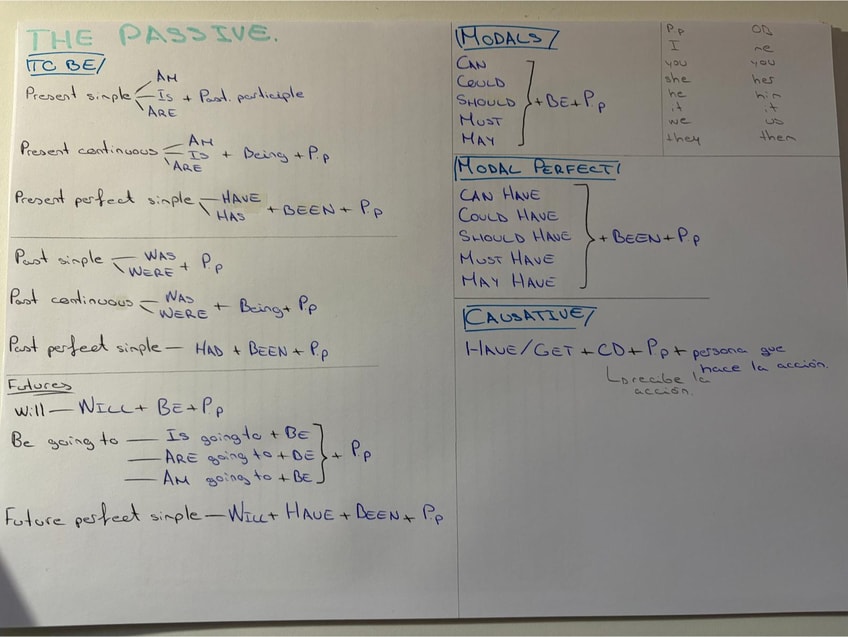 THE PASSIVE.
TO BE/
Present simple AM
IS + Past. participle
ARE
Present continuous AM
IS + Being + P.p
ARE
Present perfect simple HAVE
HAS + BEEN + P.p
Past simple WAS
WERE + P.p
Past continuous WAS
WERE + Being + P.p
Past perfect simple — HAD + BEEN + P.p
Futures
Will — WILL + BE + P.p
Be going to — IS going to + BE
— ARE going to + BE + P.p
— AM going to + BE
Future perfect simple — WILL + HAVE + BEEN + P.p
MODALS/
CAN
COULD
SHOULD + BE + P.p
MUST
MAY
P.p OD
I me
you you
she her
he him
it it
we us
they them
MODAL PERFECT/
CAN HAVE
COULD HAVE
SHOULD HAVE + BEEN + P.p
MUST HAVE
MAY HAVE
CAUSATIVE/
HAVE/GET + CD + P.p + persona que
hace la acción.
recibe la
acción.